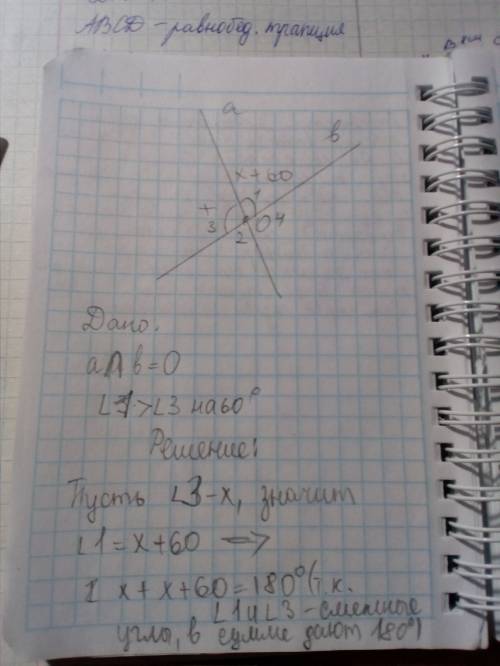 ABCD - равнобед. трапеция
a
в
x+60
1
x
3
O
4
2
Дано:
a∩в=O
∠1>∠3 на 60°
Решение:
Пусть ∠3-x, значит
∠1=x+60 =>
x+x+60=180° (т.к.
∠1 и ∠3-смежные
углы, в сумме дают 180°)